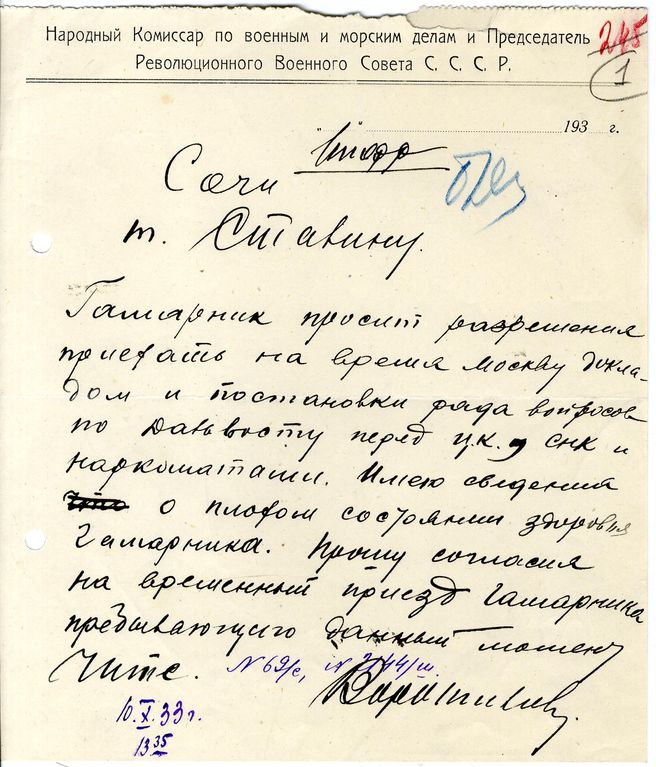 Народный Комиссар по военным и морским делам и Председатель
Революционного Военного Совета С. С. С. Р.
245
1
" " 193 г.
Шифр
Сочи
т. Сталину.
Гамарник просит разрешения
приехать на время Москву докла-
дом и постановки ряда вопросов
по Дальвосту перед ц.к. снк и
наркоматами. Имею сведения
о плохом состоянии здоровья
Гамарника. Прошу согласия
на временный приезд Гамарника
пребывающего данный момент
Чите. N 69/с,
Ворошилов.
10.X.33 г.
13 35